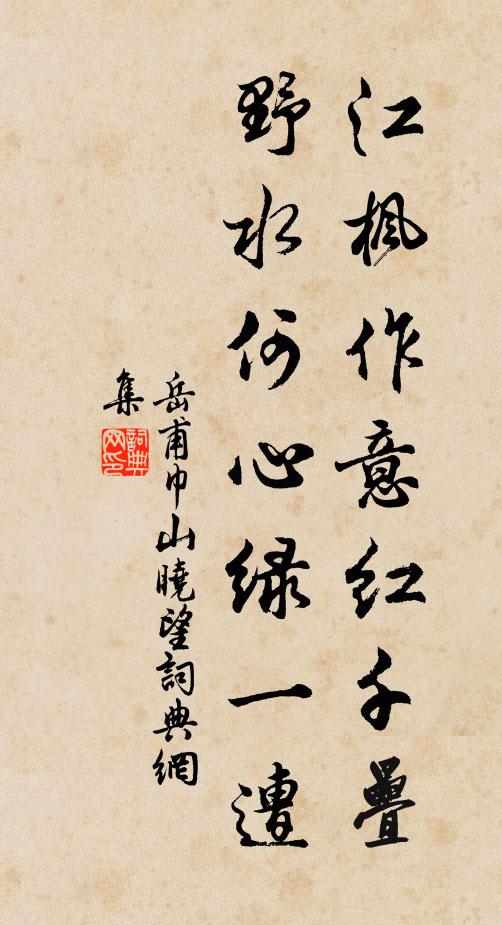 江枫作意红千疊
野水何心绿一遭
岳甫巾山曉望詞典網
集
詞典
网印